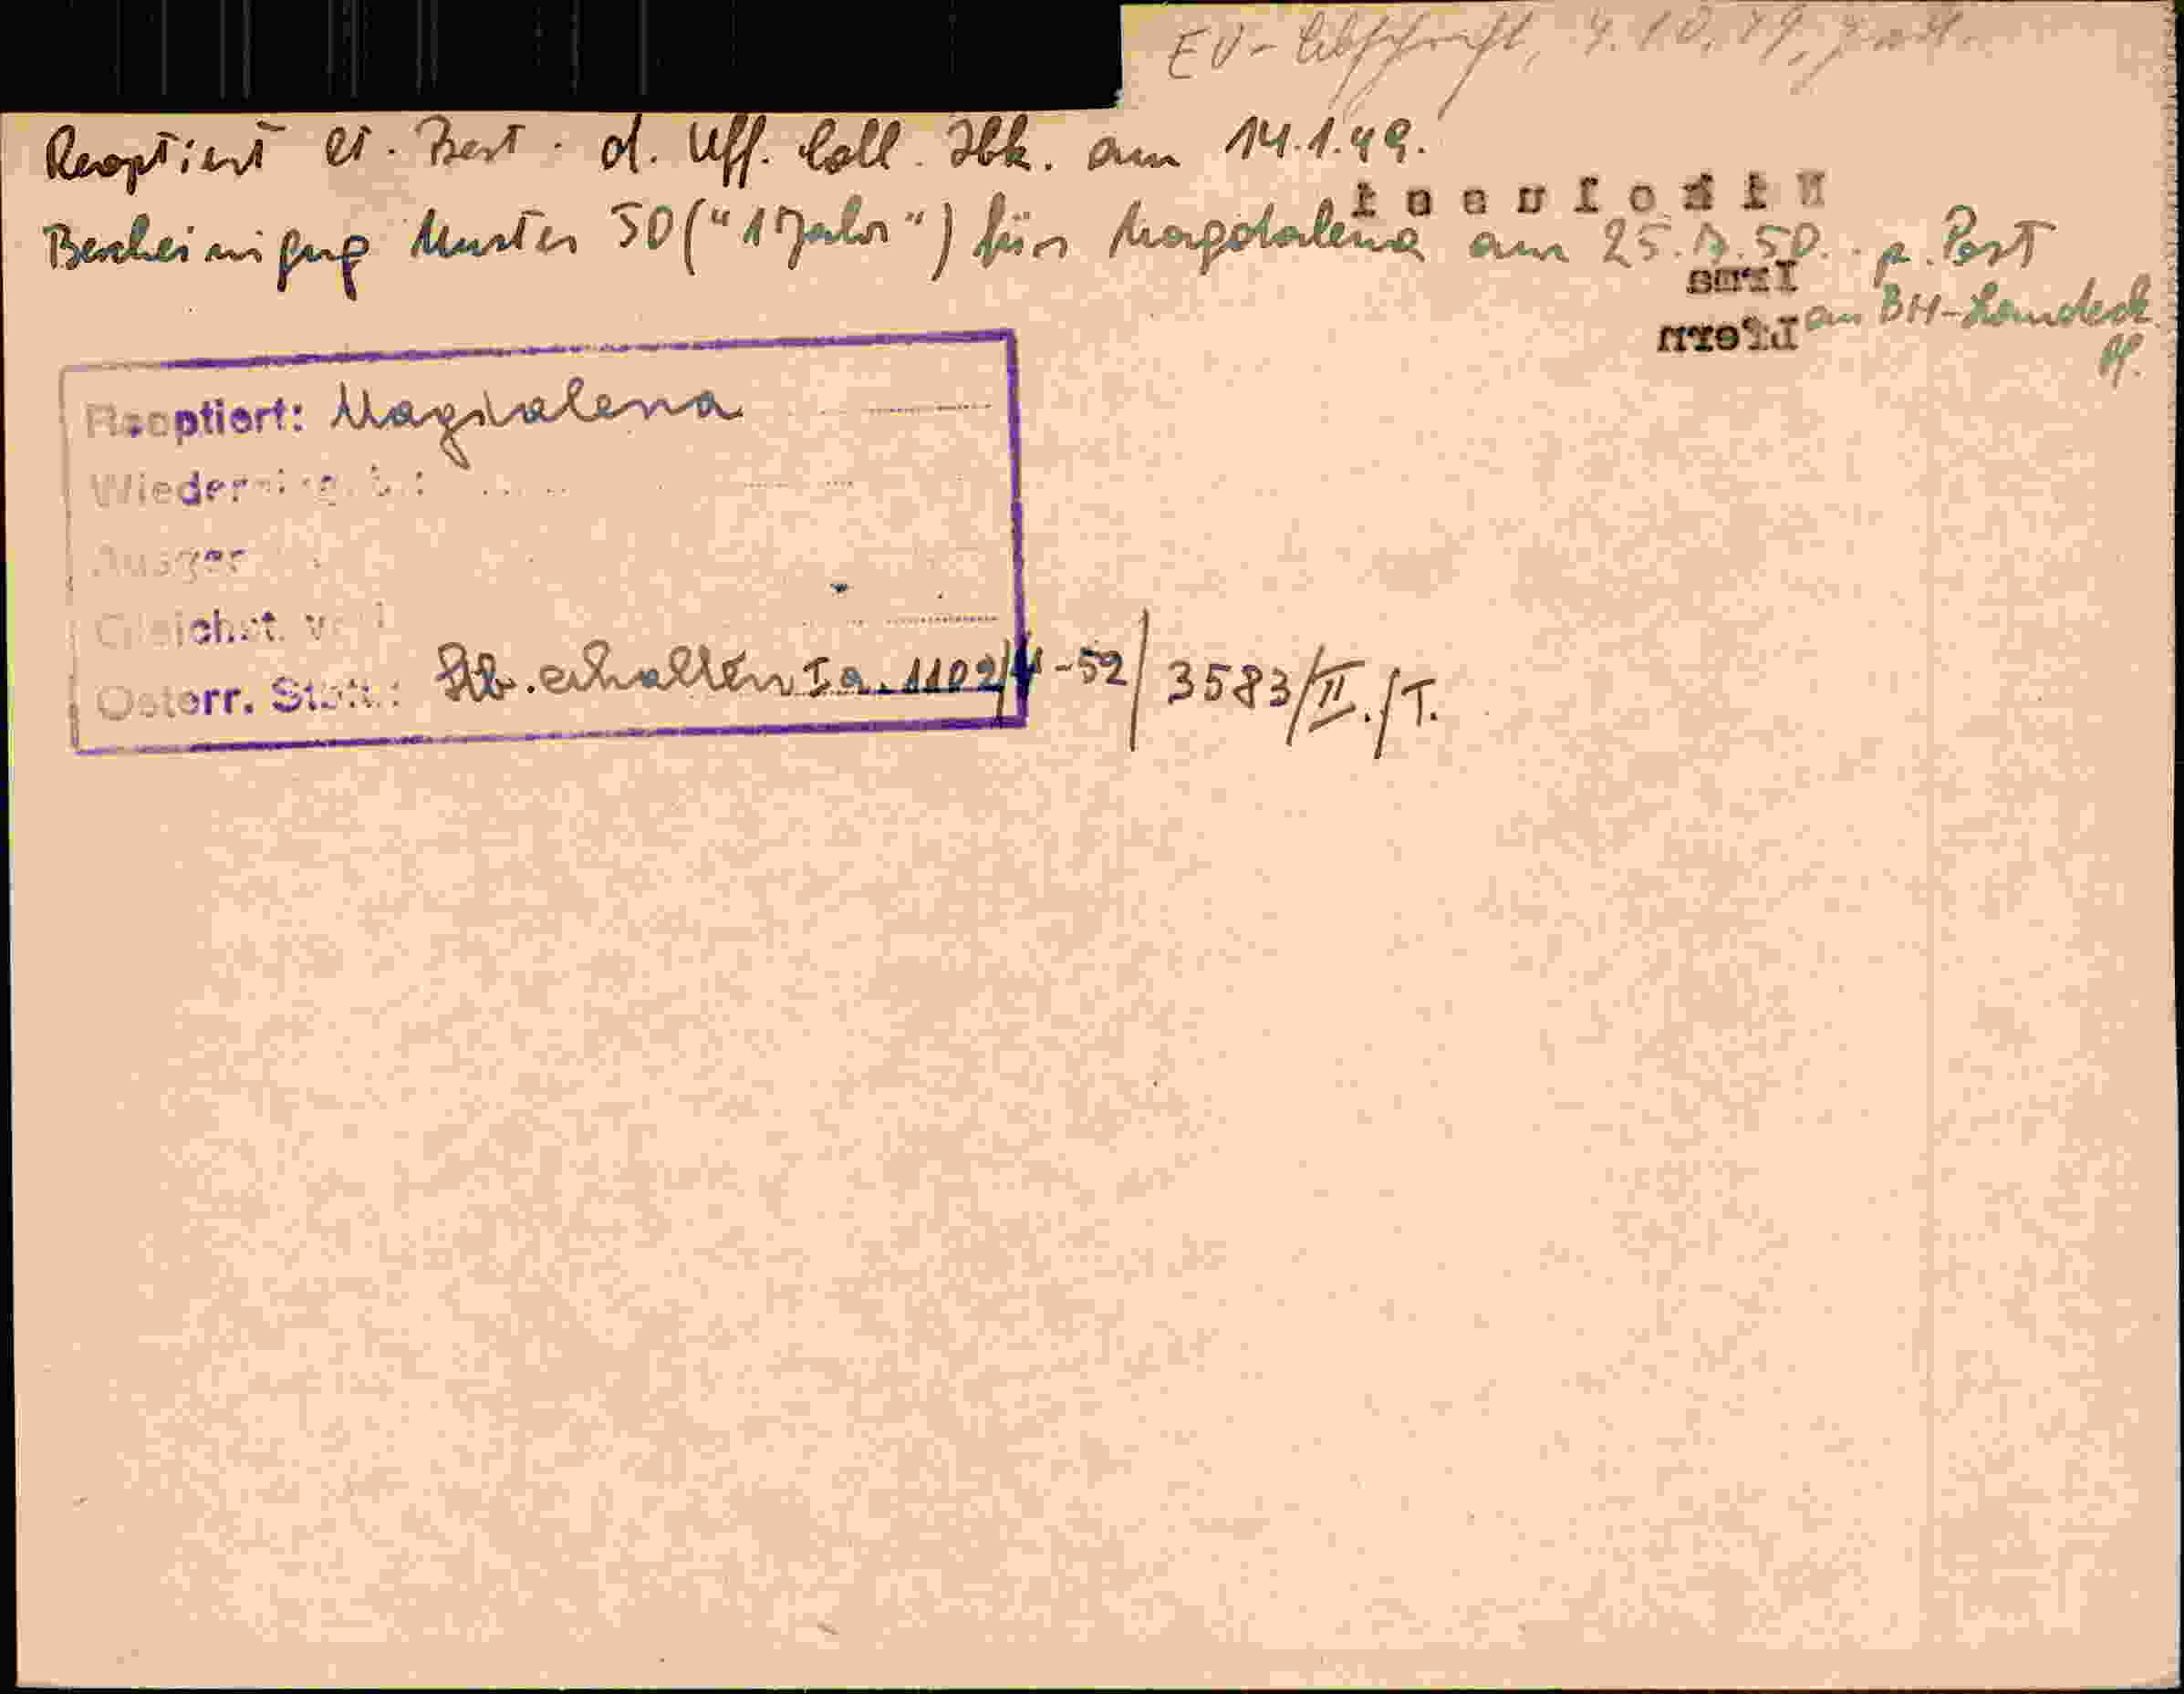 EU-Abschrift, 4.10.49,
Reoptiert lt. Best. d. Uff. Coll. Ibk. am 14.1.49.
Bescheinigung Muster 50 ("1 Jahr") für Magdalena am 25. .50. p. Post
an BH-Landeck
Reoptiert: Magdalena
Wieder
Ausges
Gleichst. v
Österr. Staat.: Stb. erhalten Ia. 1102/4-52/3583/II./T.